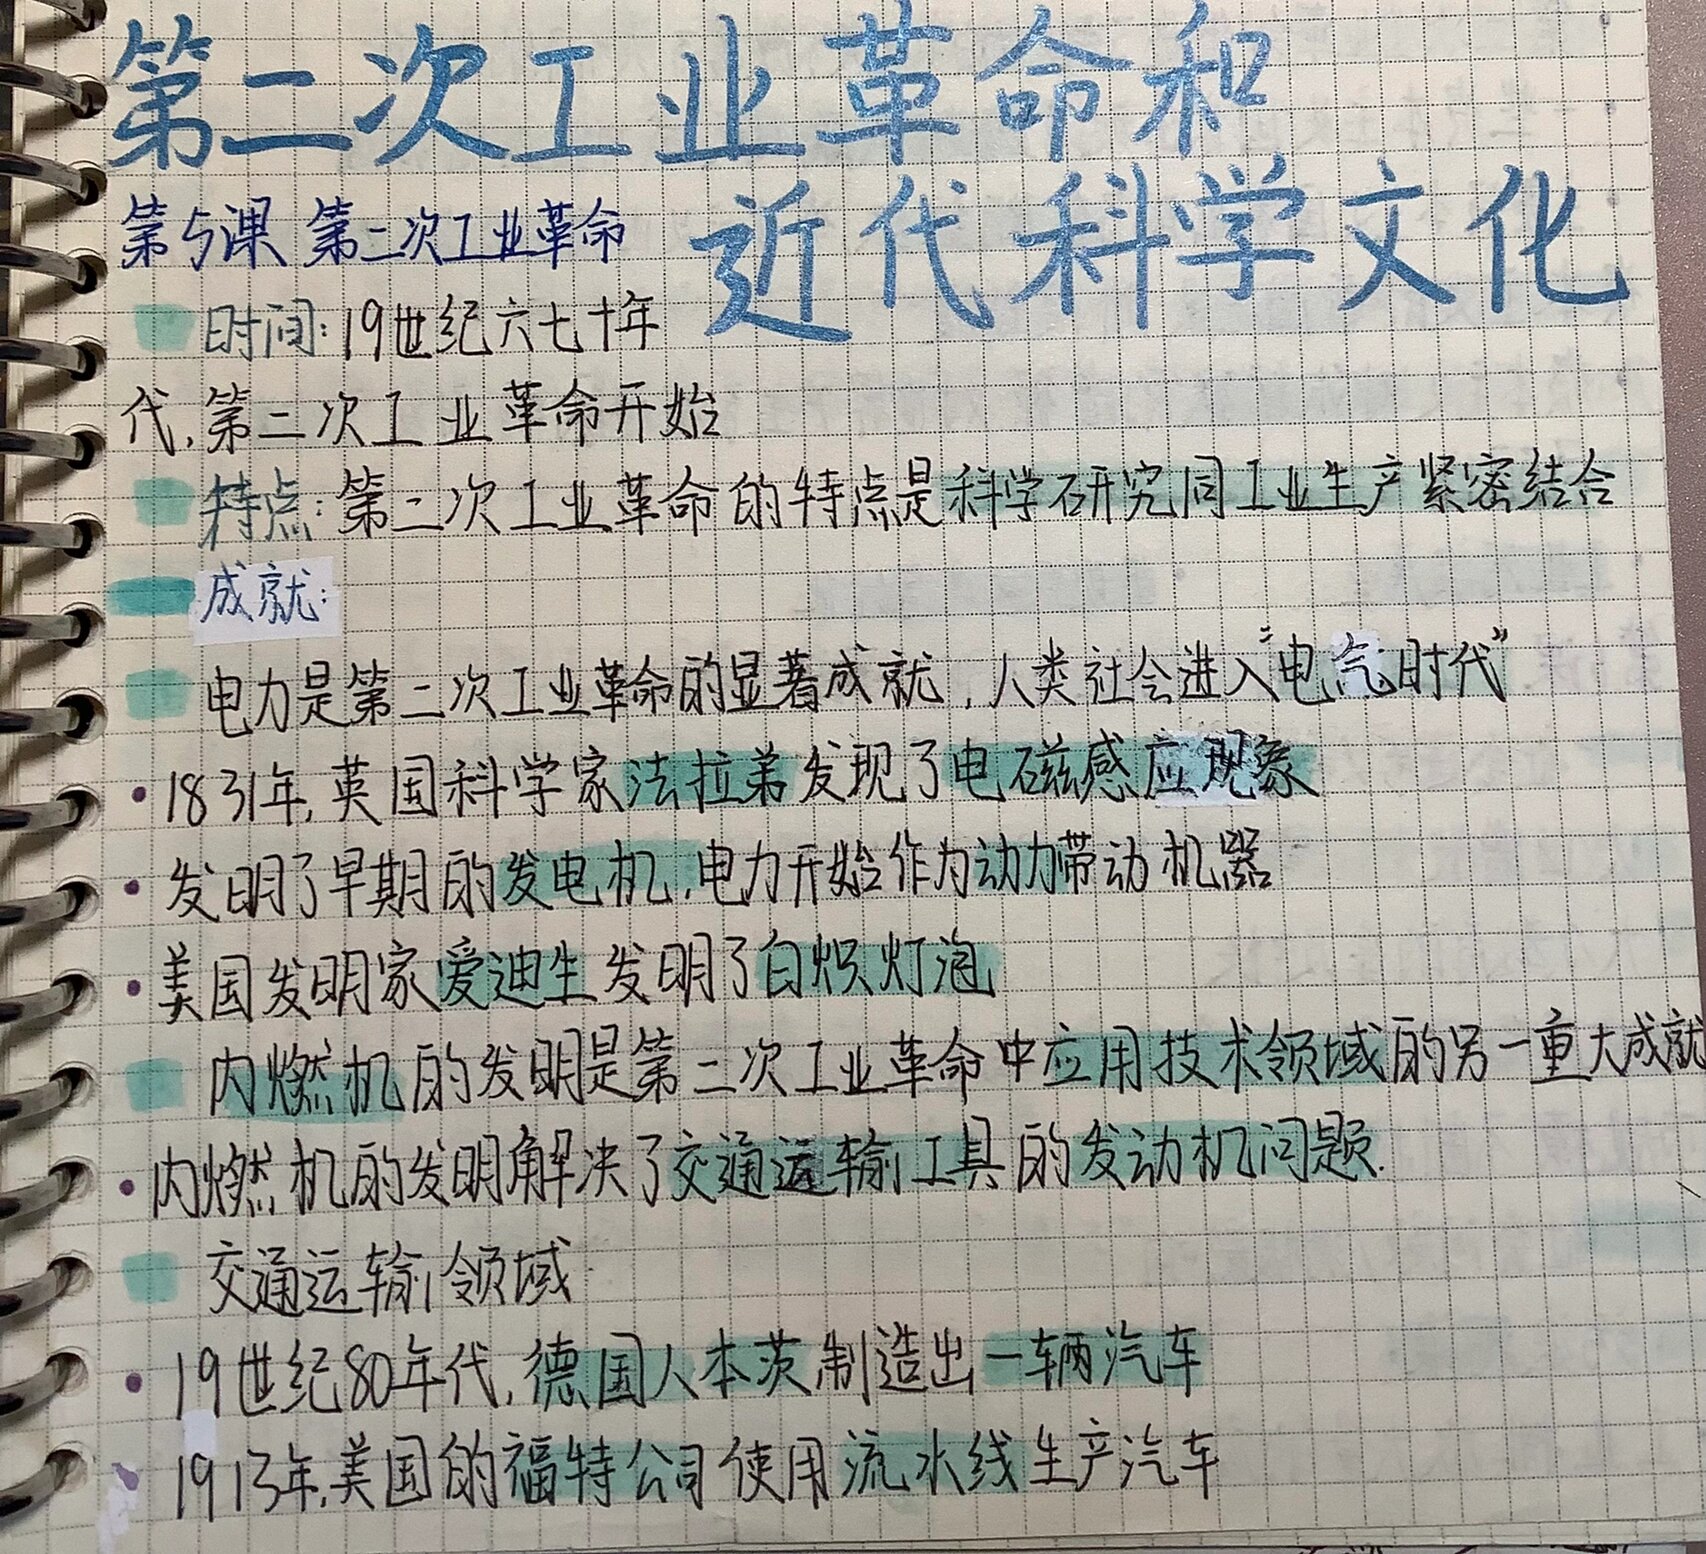 第二次工业革命和
近代科学文化
第5课 第二次工业革命
时间:19世纪六七十年
代,第二次工业革命开始
特点:第二次工业革命的特点是科学研究同工业生产紧密结合
成就:
电力是第二次工业革命的显著成就,人类社会进入“电气时代”
·1831年,英国科学家法拉弟发现了电磁感应现象
·发明了早期的发电机,电力开始作为动力带动机器
·美国发明家爱迪生发明了白炽灯泡
内燃机的发明是第二次工业革命中应用技术领域的另一重大成就
·内燃机的发明解决了交通运输工具的发动机问题.
交通运输领域
·19世纪80年代,德国人本茨制造出一辆汽车
1913年,美国的福特公司使用流水线生产汽车